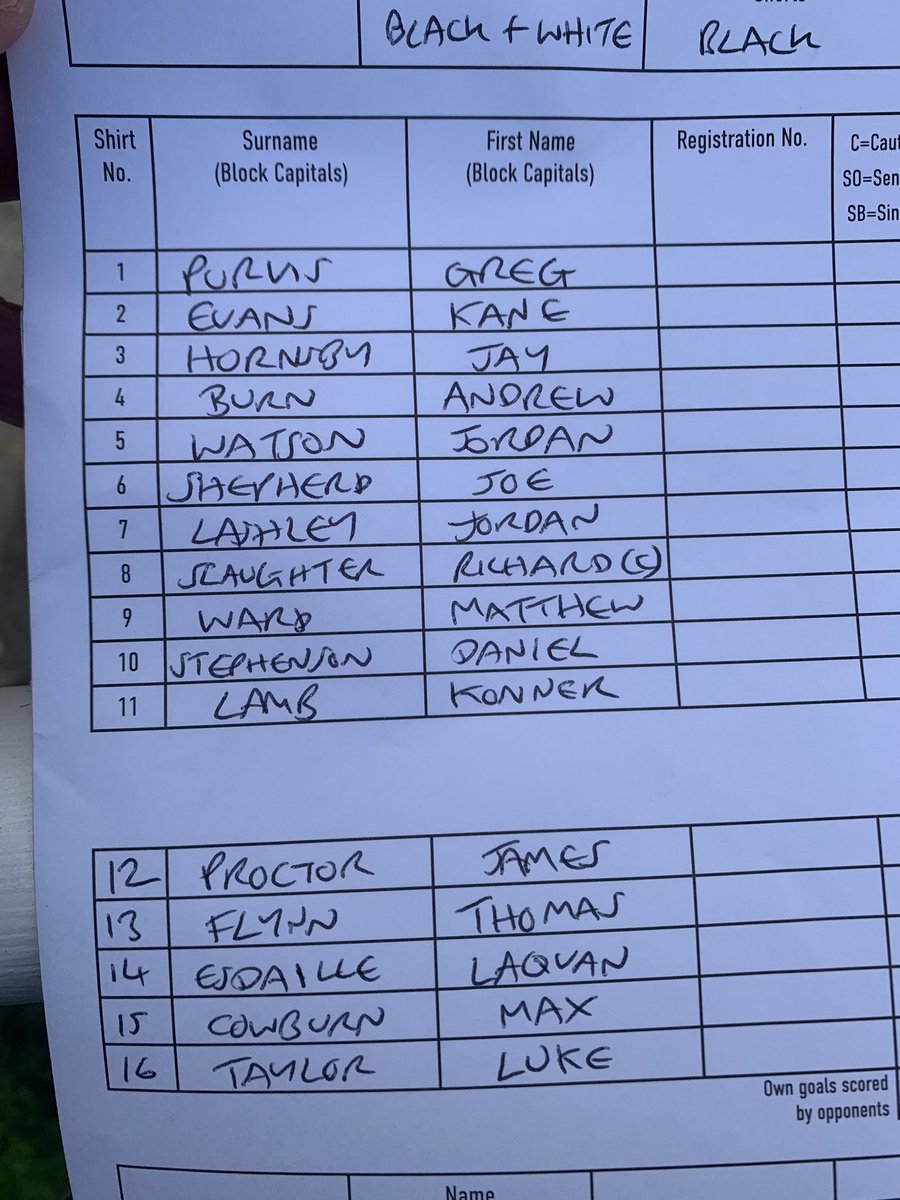 BLACK + WHITE BLACK
Shirt No. Surname (Block Capitals) First Name (Block Capitals) Registration No. C=Caut SO=Sen SB=Sin
1 PURVIS GREG
2 EVANS KANE
3 HORNSBY JAY
4 BURN ANDREW
5 WATSON JORDAN
6 SHEPHERD JOE
7 LASHLEY JORDAN
8 SLAUGHTER RICHARD (C)
9 WARD MATTHEW
10 STEPHENSON DANIEL
11 LAMB KONNER
12 PROCTOR JAMES
13 FLYNN THOMAS
14 ESDAILLE LAQUAN
15 COWBURN MAX
16 TAYLOR LUKE
Own goals scored
by opponents
Name